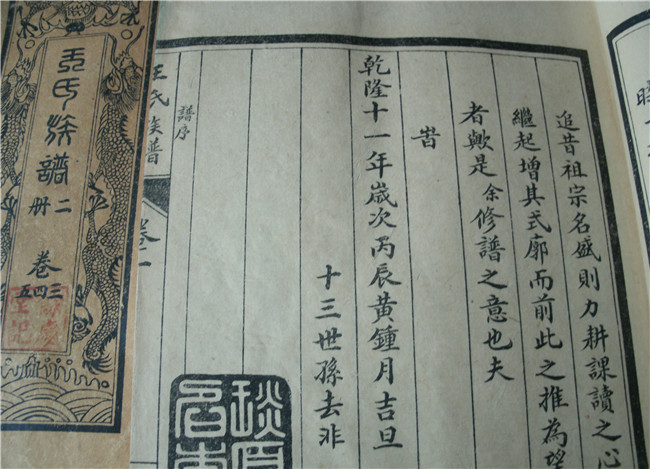 追昔祖宗名盛則力耕課讀之心
繼起增其式廓而前此之推為望
者歟是余修譜之意也夫
旹
乾隆十一年歲次丙辰黃鍾月吉旦
十三世孫去非
譜序
王氏族譜
卷一
王氏族譜
二册
卷三四五